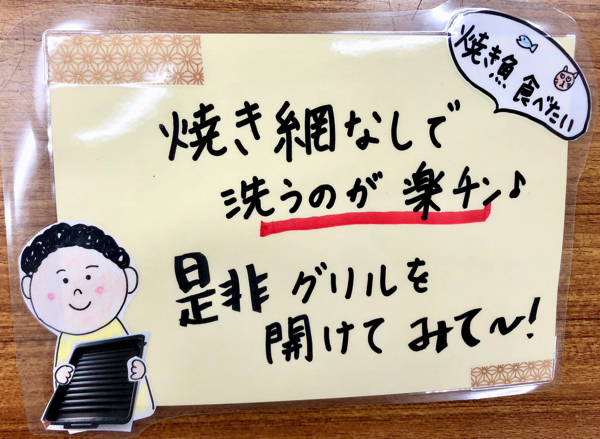 焼き魚 食べたい
焼き網なしで
洗うのが 楽チン♪
是非 グリルを
開けて みて〜!